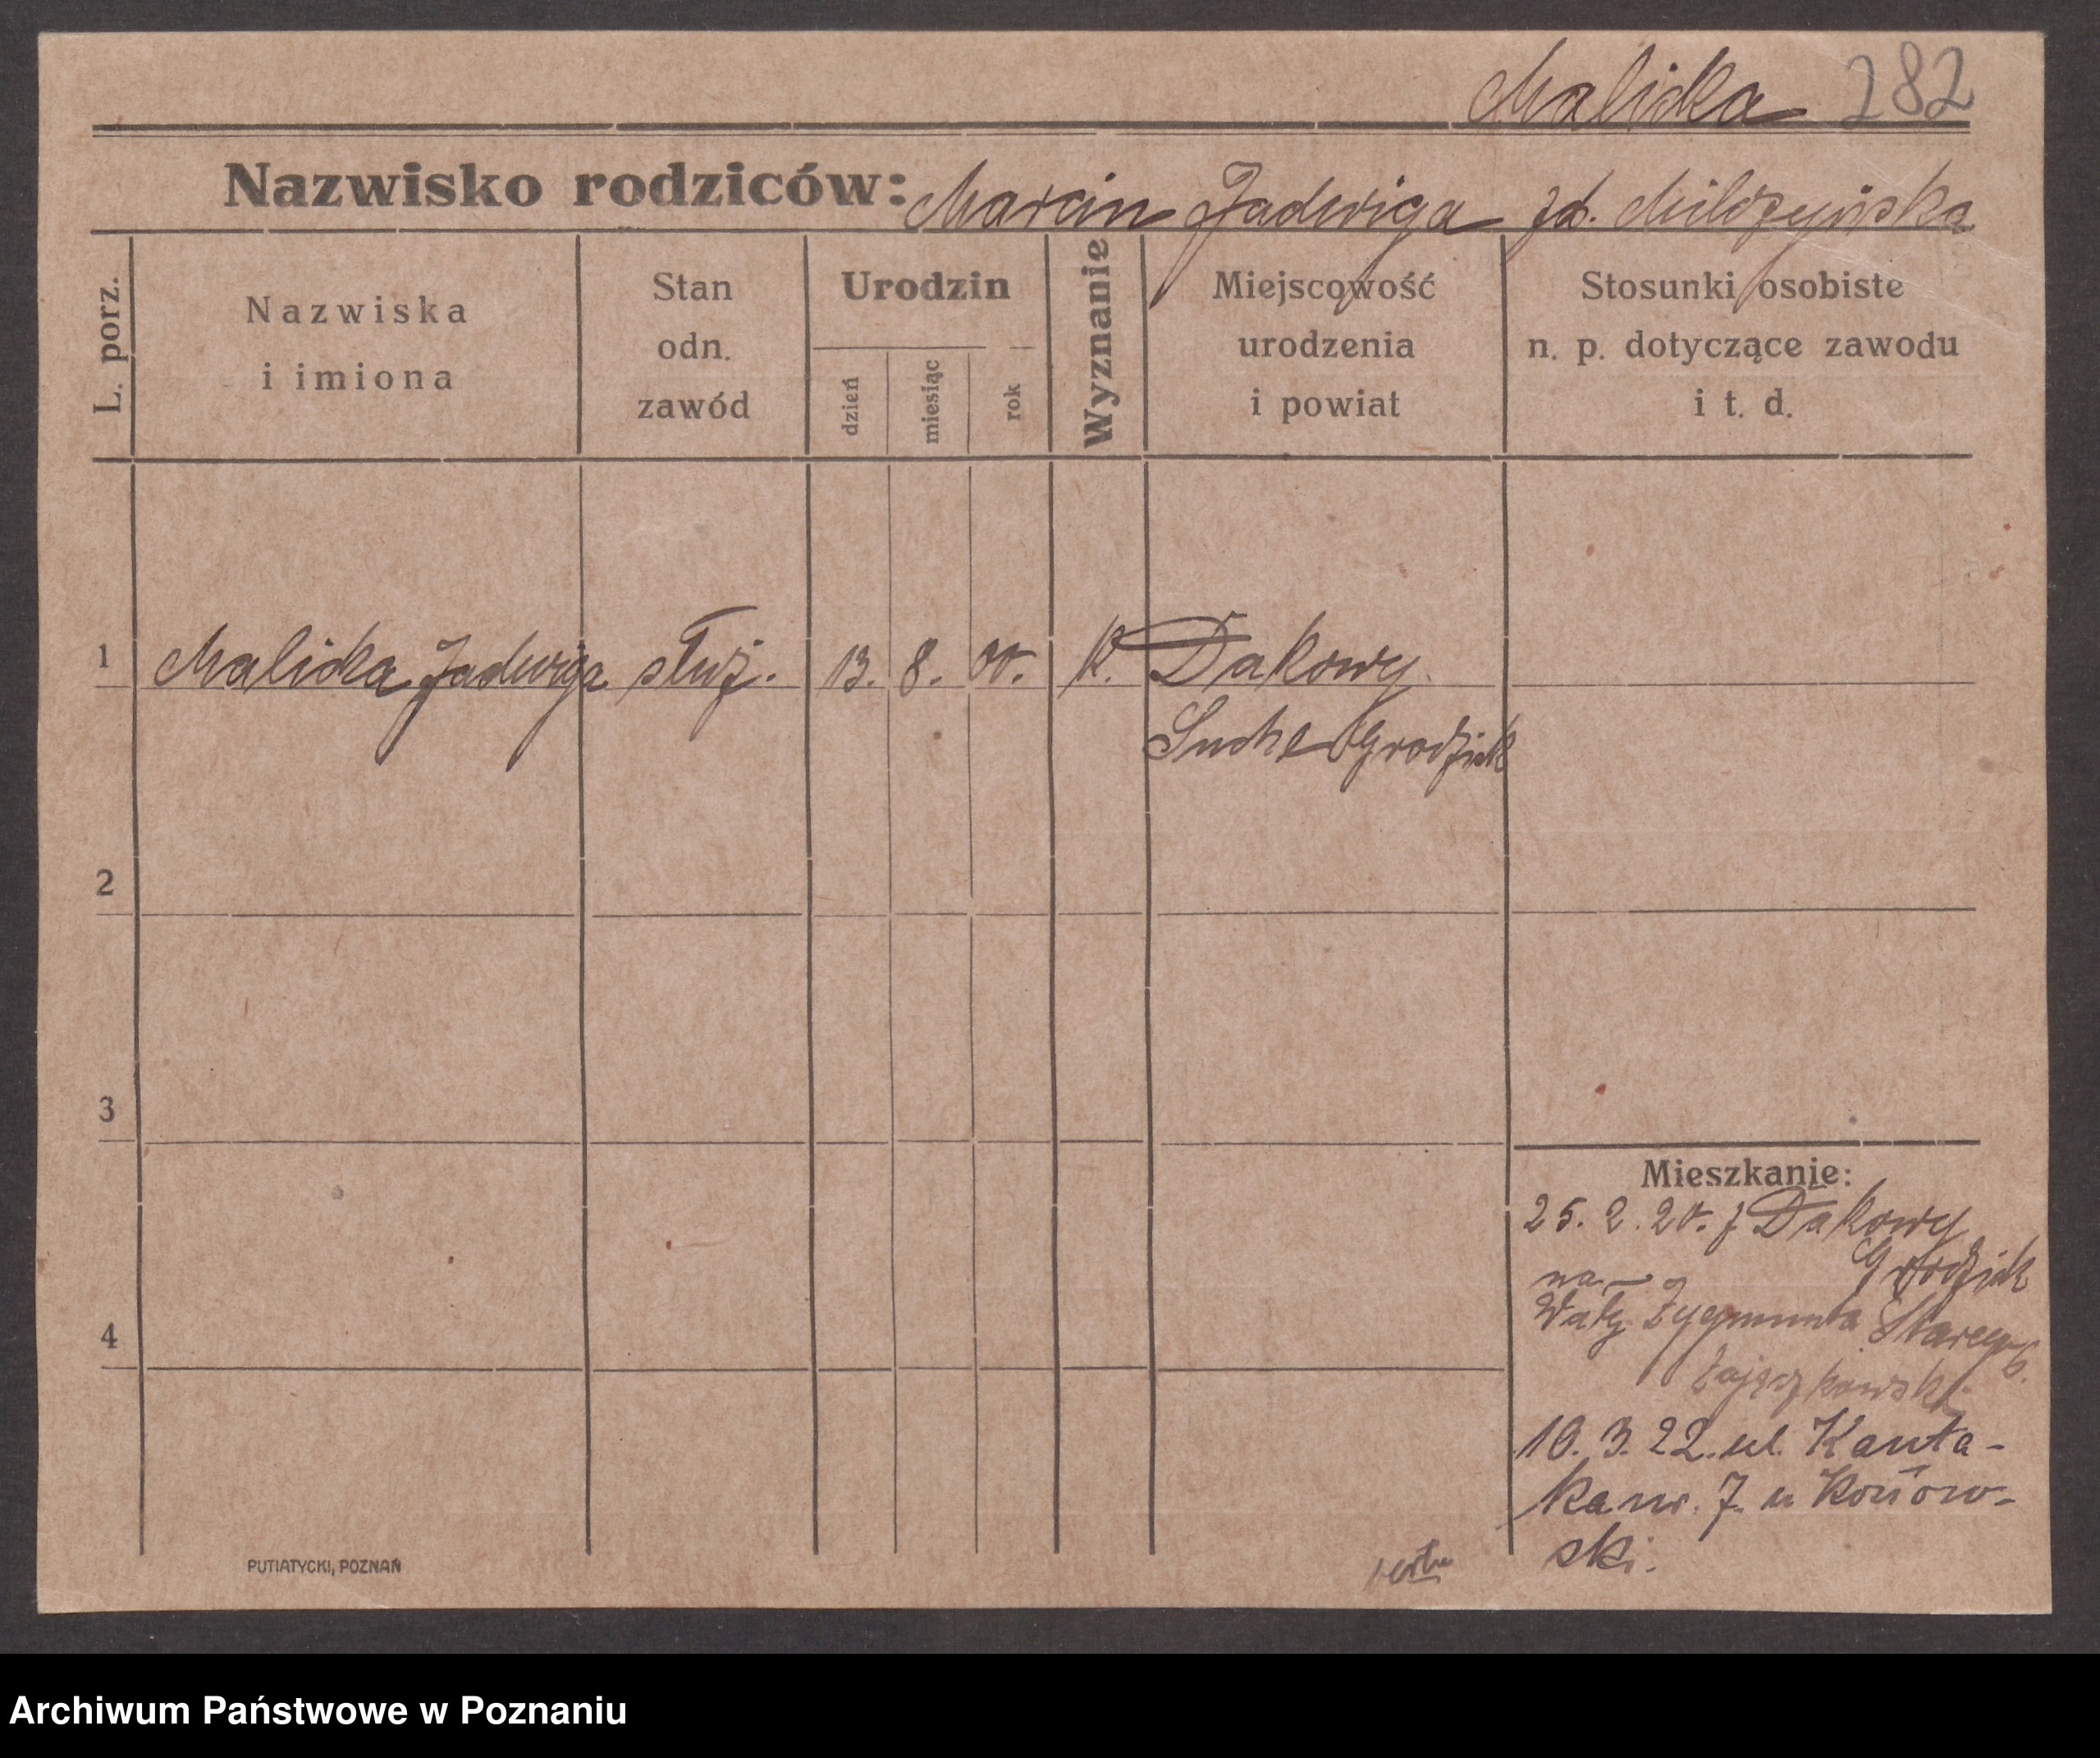 Malicka 282
Nazwisko rodziców: Marcin Jadwiga zd. Milczyńska
L. porz.
Nazwiska
i imiona
Stan
odn.
zawód
Urodzin
dzień
miesiąc
rok
Wyznanie
Miejscowość
urodzenia
i powiat
Stosunki osobiste
n. p. dotyczące zawodu
i t. d.
1 Malicka Jadwiga służ. 13. 8. 00. K. Dakowy
Suche Grodzisk
2
3
4
Mieszkanie:
25. 2. 20. z Dakowy
Grodzisk
na
Wały Zygmunta Starego 6.
Zajączkowski
10. 3. 22. ul. Kanta-
ka nr. 7. u Końow-
ski.
PUTIATYCKI, POZNAŃ
Archiwum Państwowe w Poznaniu